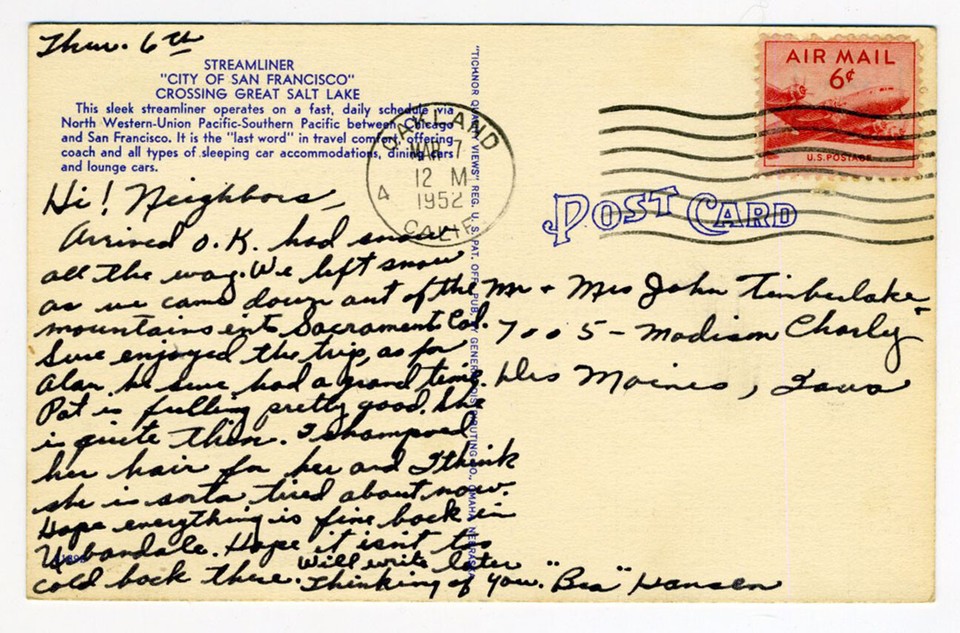 Thur. 6th
STREAMLINER
"CITY OF SAN FRANCISCO"
CROSSING GREAT SALT LAKE
This sleek streamliner operates on a fast, daily schedule via
North Western-Union Pacific-Southern Pacific between Chicago
and San Francisco. It is the "last word" in travel comfort, offering
coach and all types of sleeping car accommodations, dining cars
and lounge cars.
Hi! Neighbors,
Arrived O.K. had snow
all the way. We left snow
as we came down out of the
mountains into Sacramento Cal.
Sure enjoyed the trip, as for
Alan he sure had a grand time.
Pat is fulling pretty good. She
is quite thin. I shampooed
her hair for her and I think
she is sorta tired about now.
Hope everything is fine back in
Urbandale. Hope it isn't too
cold back there. Will write later
Thinking of you. "Bea" Hansen
"TICHNOR QUALITY VIEWS" REG. U. S. PAT. OFF. PUB. BY GENERAL DISTRIBUTING CO., OMAHA, NEBRASKA
OAKLAND
MAR 7
12 M
1952
4
CALIF.
AIR MAIL
6¢
U.S. POSTAGE
POST CARD
Mr + Mrs John Timberlake
7005 - Madison Charly
Des Moines, Iowa